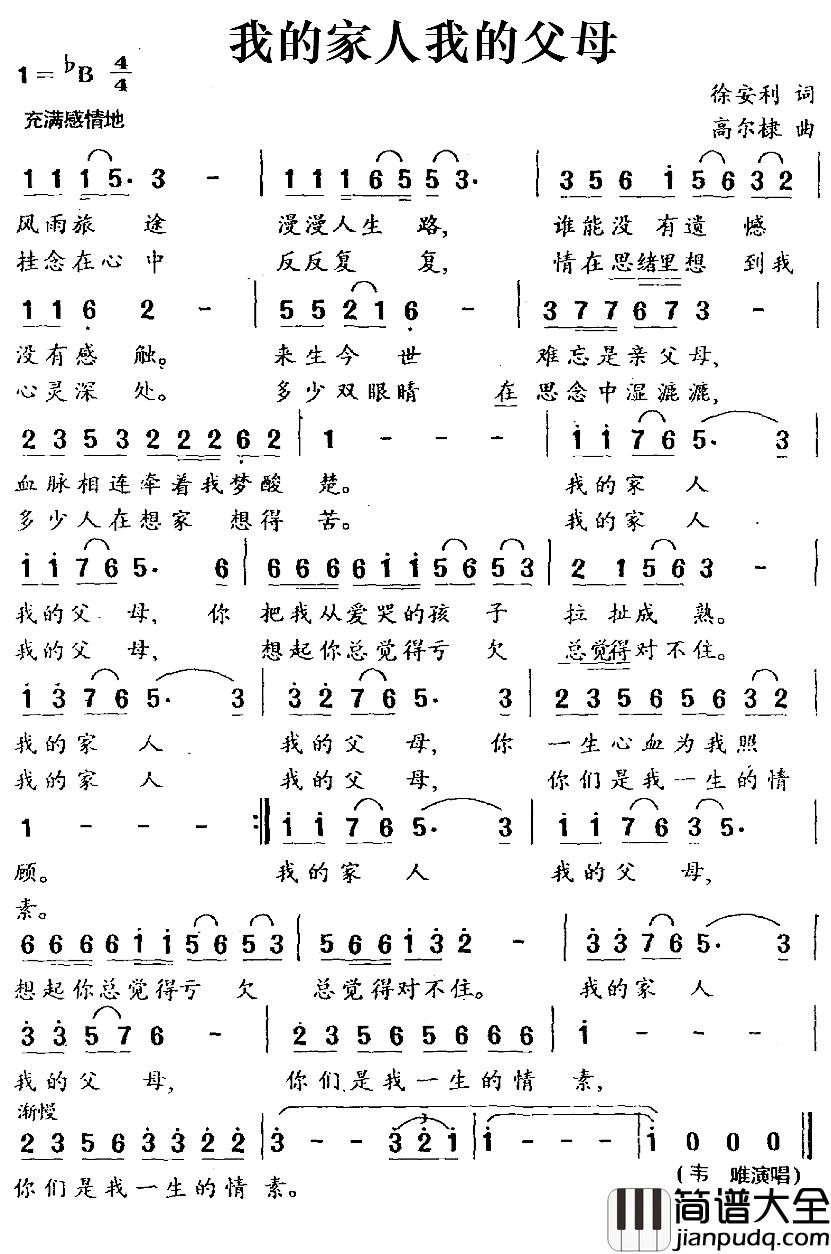 我的家人我的父母
1=♭B 4/4
徐安利 词
充满感情地
高尔棣 曲
1 1 1 5. 3 - | 1 1 1 6 5 5 3. | 3 5 6 i 5 6 3 2
风雨旅途 漫漫人生路, 谁能没有遗憾
挂念在心中 反反复复, 情在思绪里想到我
1 1 6 2 - | 5 5 2 1 6 - | 3 7 7 6 7 3 -
没有感触。 来生今世 难忘是亲父母,
心灵深处。 多少双眼睛 在思念中湿漉漉,
2 3 5 3 2 2 2 6 2 | 1 - - - | i i 7 6 5. 3
血脉相连牵着我梦酸楚。 我的家人
多少人在想家想得苦。 我的家人
i i 7 6 5. 6 | 6 6 6 6 i i 5 6 5 3 | 2 1 5 6 3 -
我的父母, 你把我从爱哭的孩子拉扯成熟。
我的父母, 想起你总觉得亏欠 总觉得对不住。
i 3 7 6 5. 3 | 3 2 7 6 5. 3 | 2 3 5 6 5 6 3 2
我的家人 我的父母, 你一生心血为我照
我的家人 我的父母, 你们是我一生的情
1 - - - :‖ i i 7 6 5. 3 | i i 7 6 3 5.
顾。 我的家人 我的父母,
素。
6 6 6 6 i i 5 6 5 3 | 5 6 6 i 3 2 - | 3 3 7 6 5. 3
想起你总觉得亏欠 总觉得对不住。 我的家人
3 3 5 7 6 - | 2 3 5 6 5 6 6 6 | i - - -
我的父母, 你们是我一生的情素,
渐慢
2 3 5 6 3 3 2 2 | 3 - - 3 2 i | i - - - | i 0 0 0 ‖
3
你们是我一生的情素。
(韦唯演唱)
简谱大全
jianpudq.com